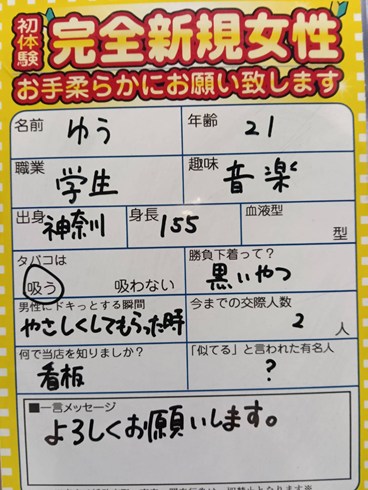 初体験 完全新規女性
お手柔らかにお願い致します
名前 ゆう 年齢 21
職業 学生 趣味 音楽
出身 神奈川 身長 155 血液型 型
タバコは 吸う 吸わない
勝負下着って? 黒いやつ
男性にドキっとする瞬間 やさしくしてもらった時
今までの交際人数 2 人
何で当店を知りましたか? 看板
「似てる」と言われた有名人 ?
■一言メッセージ
よろしくお願いします。